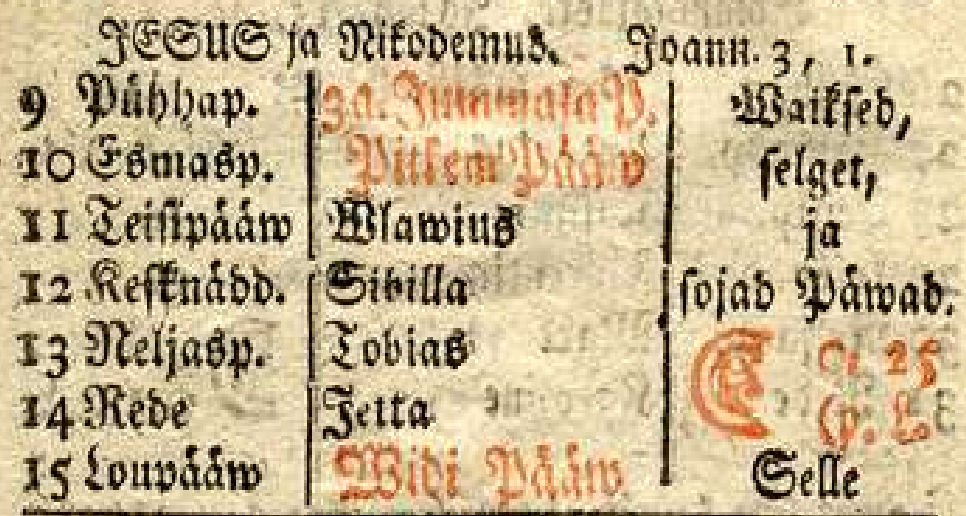 JESUS ja Nikodemus. Joann. 3, 1.
9 Pühhap. 3a. Jummala P. Waiksed,
10 Esmasp. Pitkem Pääw selget,
11 Teisipääw Wlawius ja
12 Kesknädd. Sibilla sojad Päwad.
13 Neljasp. Tobias
14 Rede Jetta
15 Loupääw Widi Pääw Selle